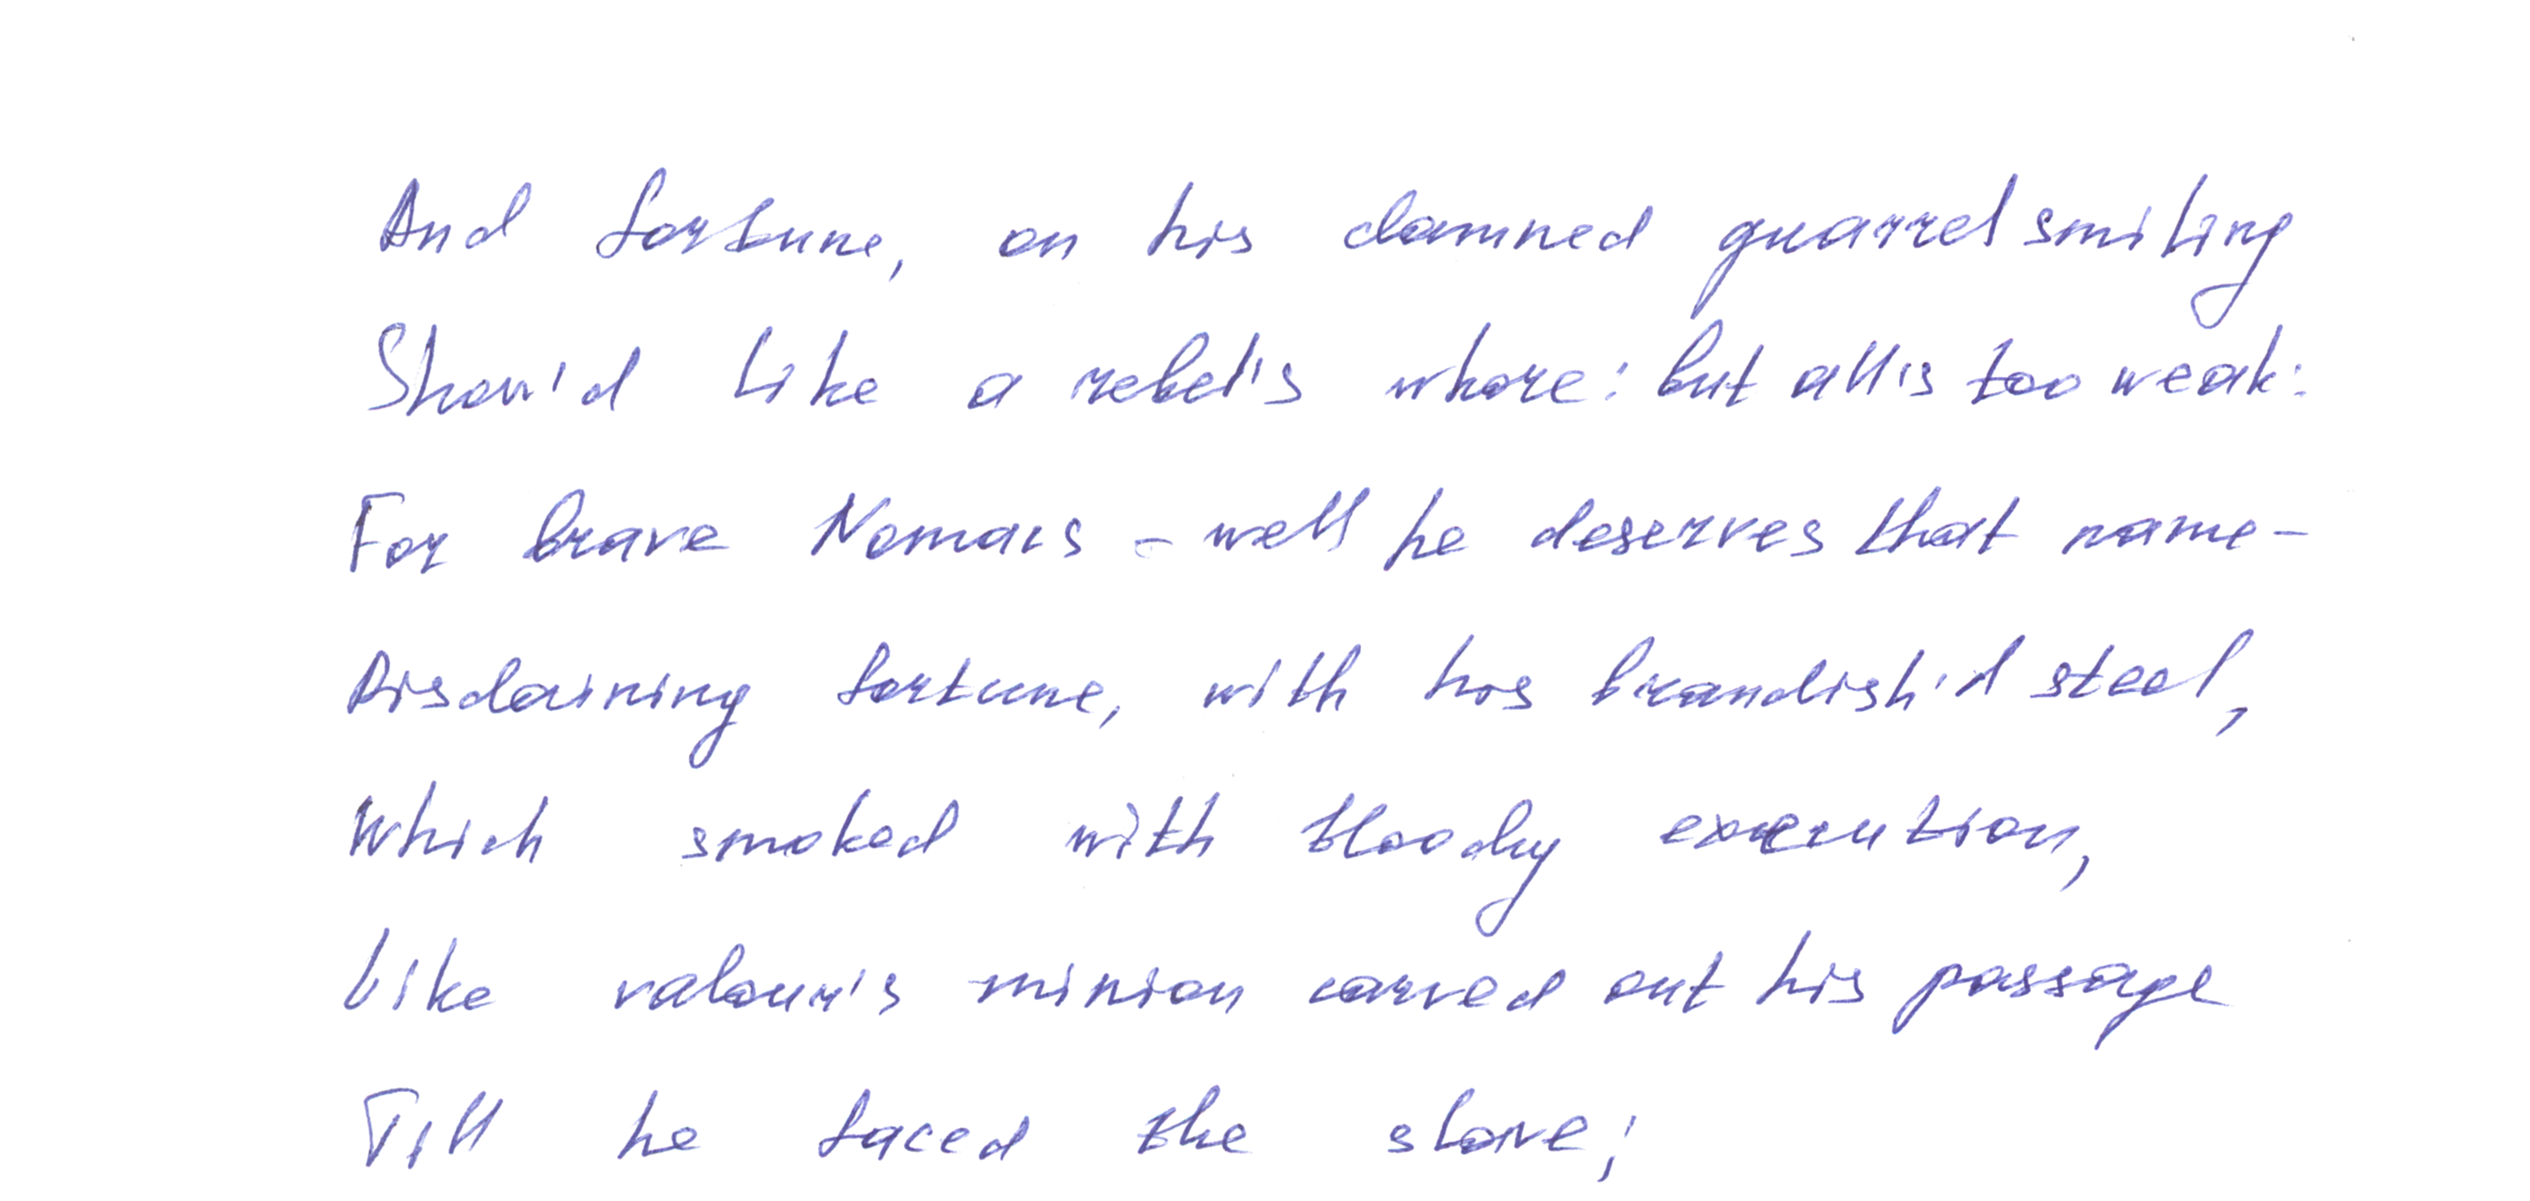 And fortune, on his damned quarrel smiling
Show'd like a rebel's whore: but all is too weak:
For brave Nomacs - well he deserves that name -
Disdaining fortune, with his brandish'd steel,
Which smoked with bloody execution,
Like valour's minion carved out his passage
Till he faced the slave;